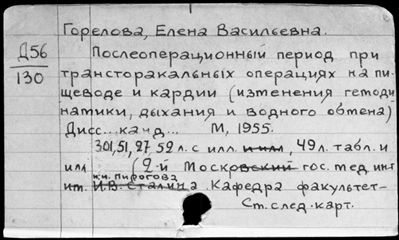 Горелова, Елена Васильевна.
Д56
130
Послеоперационный период при
трансторакальных операциях на пи-
щеводе и кардии (изменения гемоди
натики, дыхания и водного обмена)
Дисс... канд... М, 1955.
301, 51, 27 52 л. с илл. и илл, 49 л. табл. и
илл (2-й Московский гос. мед. инт
им. Н.И. Пирогова
И.В. Сталина. Кафедра факультет-
Ст. след. карт.